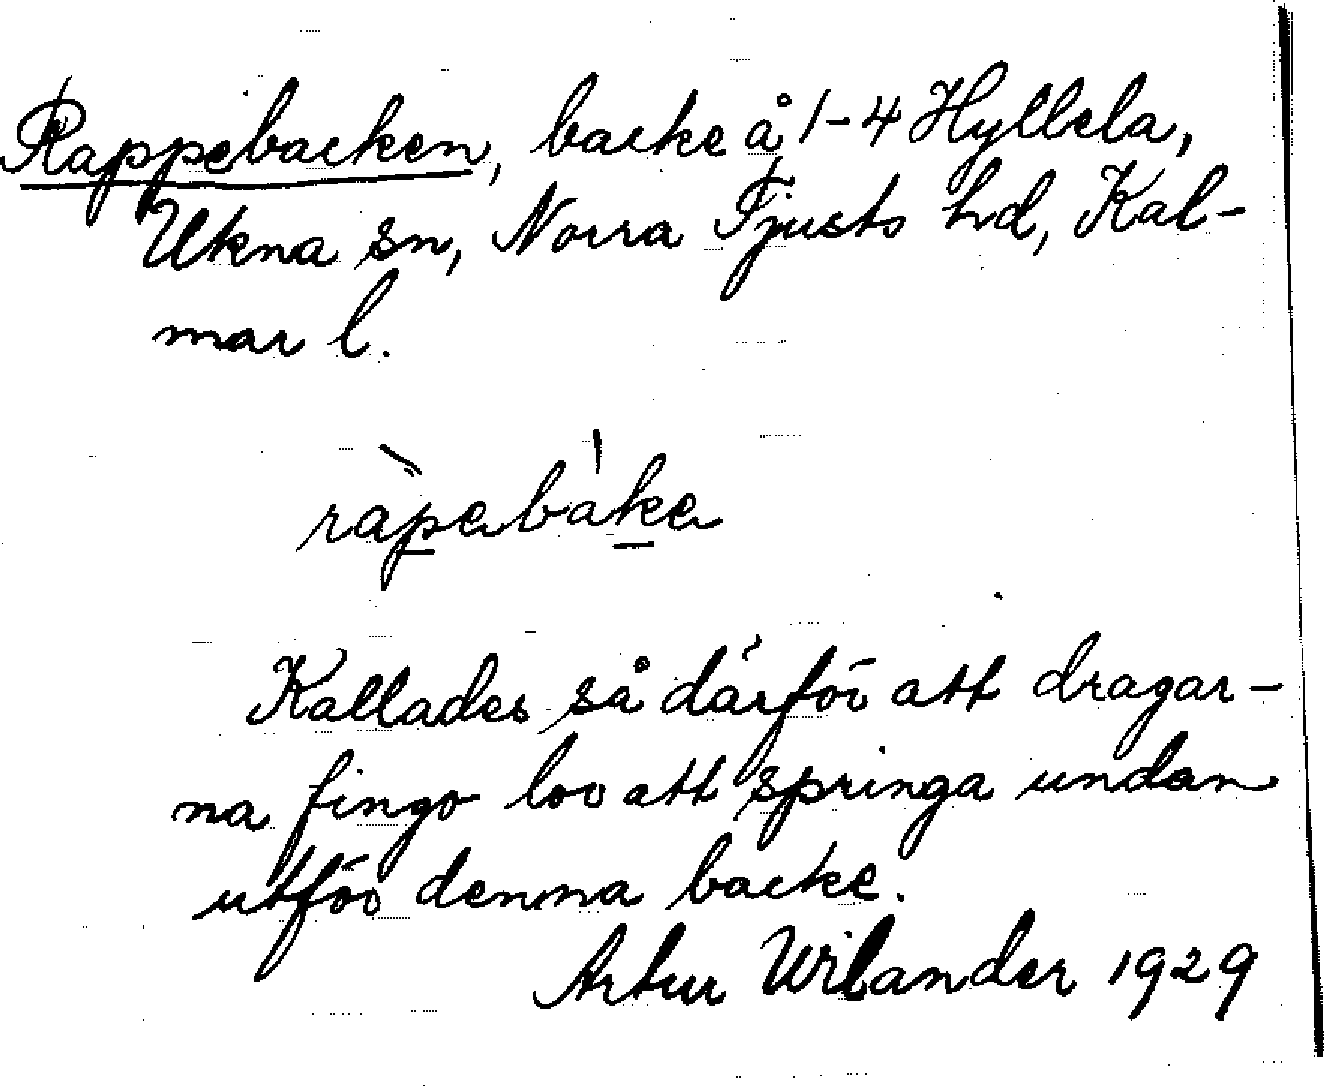 Rappebacken, backe å 1-4 Hyllela,
Ukna sn, Norra Tjusts hd, Kal-
mar l.
ràpebàke
Kallades så därför att dragar-
na fingo lov att springa undan
utför denna backe.
Artur Wilander 1929